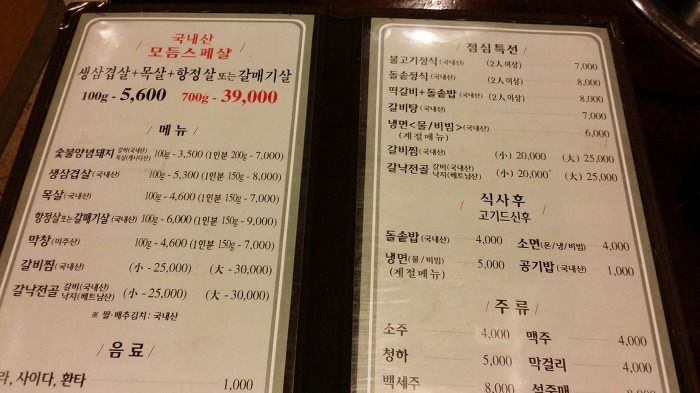 국내산
모듬스페샬
생삼겹살+목살+항정살또는갈매기살
100g - 5,600 700g - 39,000
/ 메뉴 /
숯불양념돼지 갈비(국내산) 목살(캐나다산) 100g - 3,500 (1인분 200g - 7,000)
생삼겹살(국내산) 100g - 5,300 (1인분 150g - 8,000)
목살(국내산) 100g - 4,600 (1인분 150g - 7,000)
항정살또는갈매기살(국내산) 100g - 6,000 (1인분 150g - 9,000)
막창(미주산) 100g - 4,600 (1인분 150g - 7,000)
갈비찜(국내산) (小 - 25,000) (大 - 30,000)
갈낙전골 갈비(국내산) 낙지(베트남산) (小 - 25,000) (大 - 30,000)
※ 쌀·배추김치: 국내산
/ 음료 /
라, 사이다, 환타 1,000
/ 점심특선 /
불고기정식(국내산) (2人이상) 7,000
돌솥정식(국내산) (2人이상) 8,000
떡갈비+돌솥밥(국내산) (2人이상) 8,000
갈비탕(국내산) 7,000
냉면<물/비빔>(국내산) 6,000
(계절메뉴)
갈비찜(국내산) (小) 20,000 (大) 25,000
갈낙전골 갈비(국내산) 낙지(베트남산) (小) 20,000 (大) 25,000
/ 식사후 /
고기드신후
돌솥밥(국내산) 4,000 소면(온/냉/비빔) 4,000
냉면(물/비빔) 5,000 공기밥(국내산) 1,000
(계절메뉴)
/ 주류 /
소주 4,000 맥주 4,000
청하 5,000 막걸리 4,000
백세주 8,000 설중매 8,000